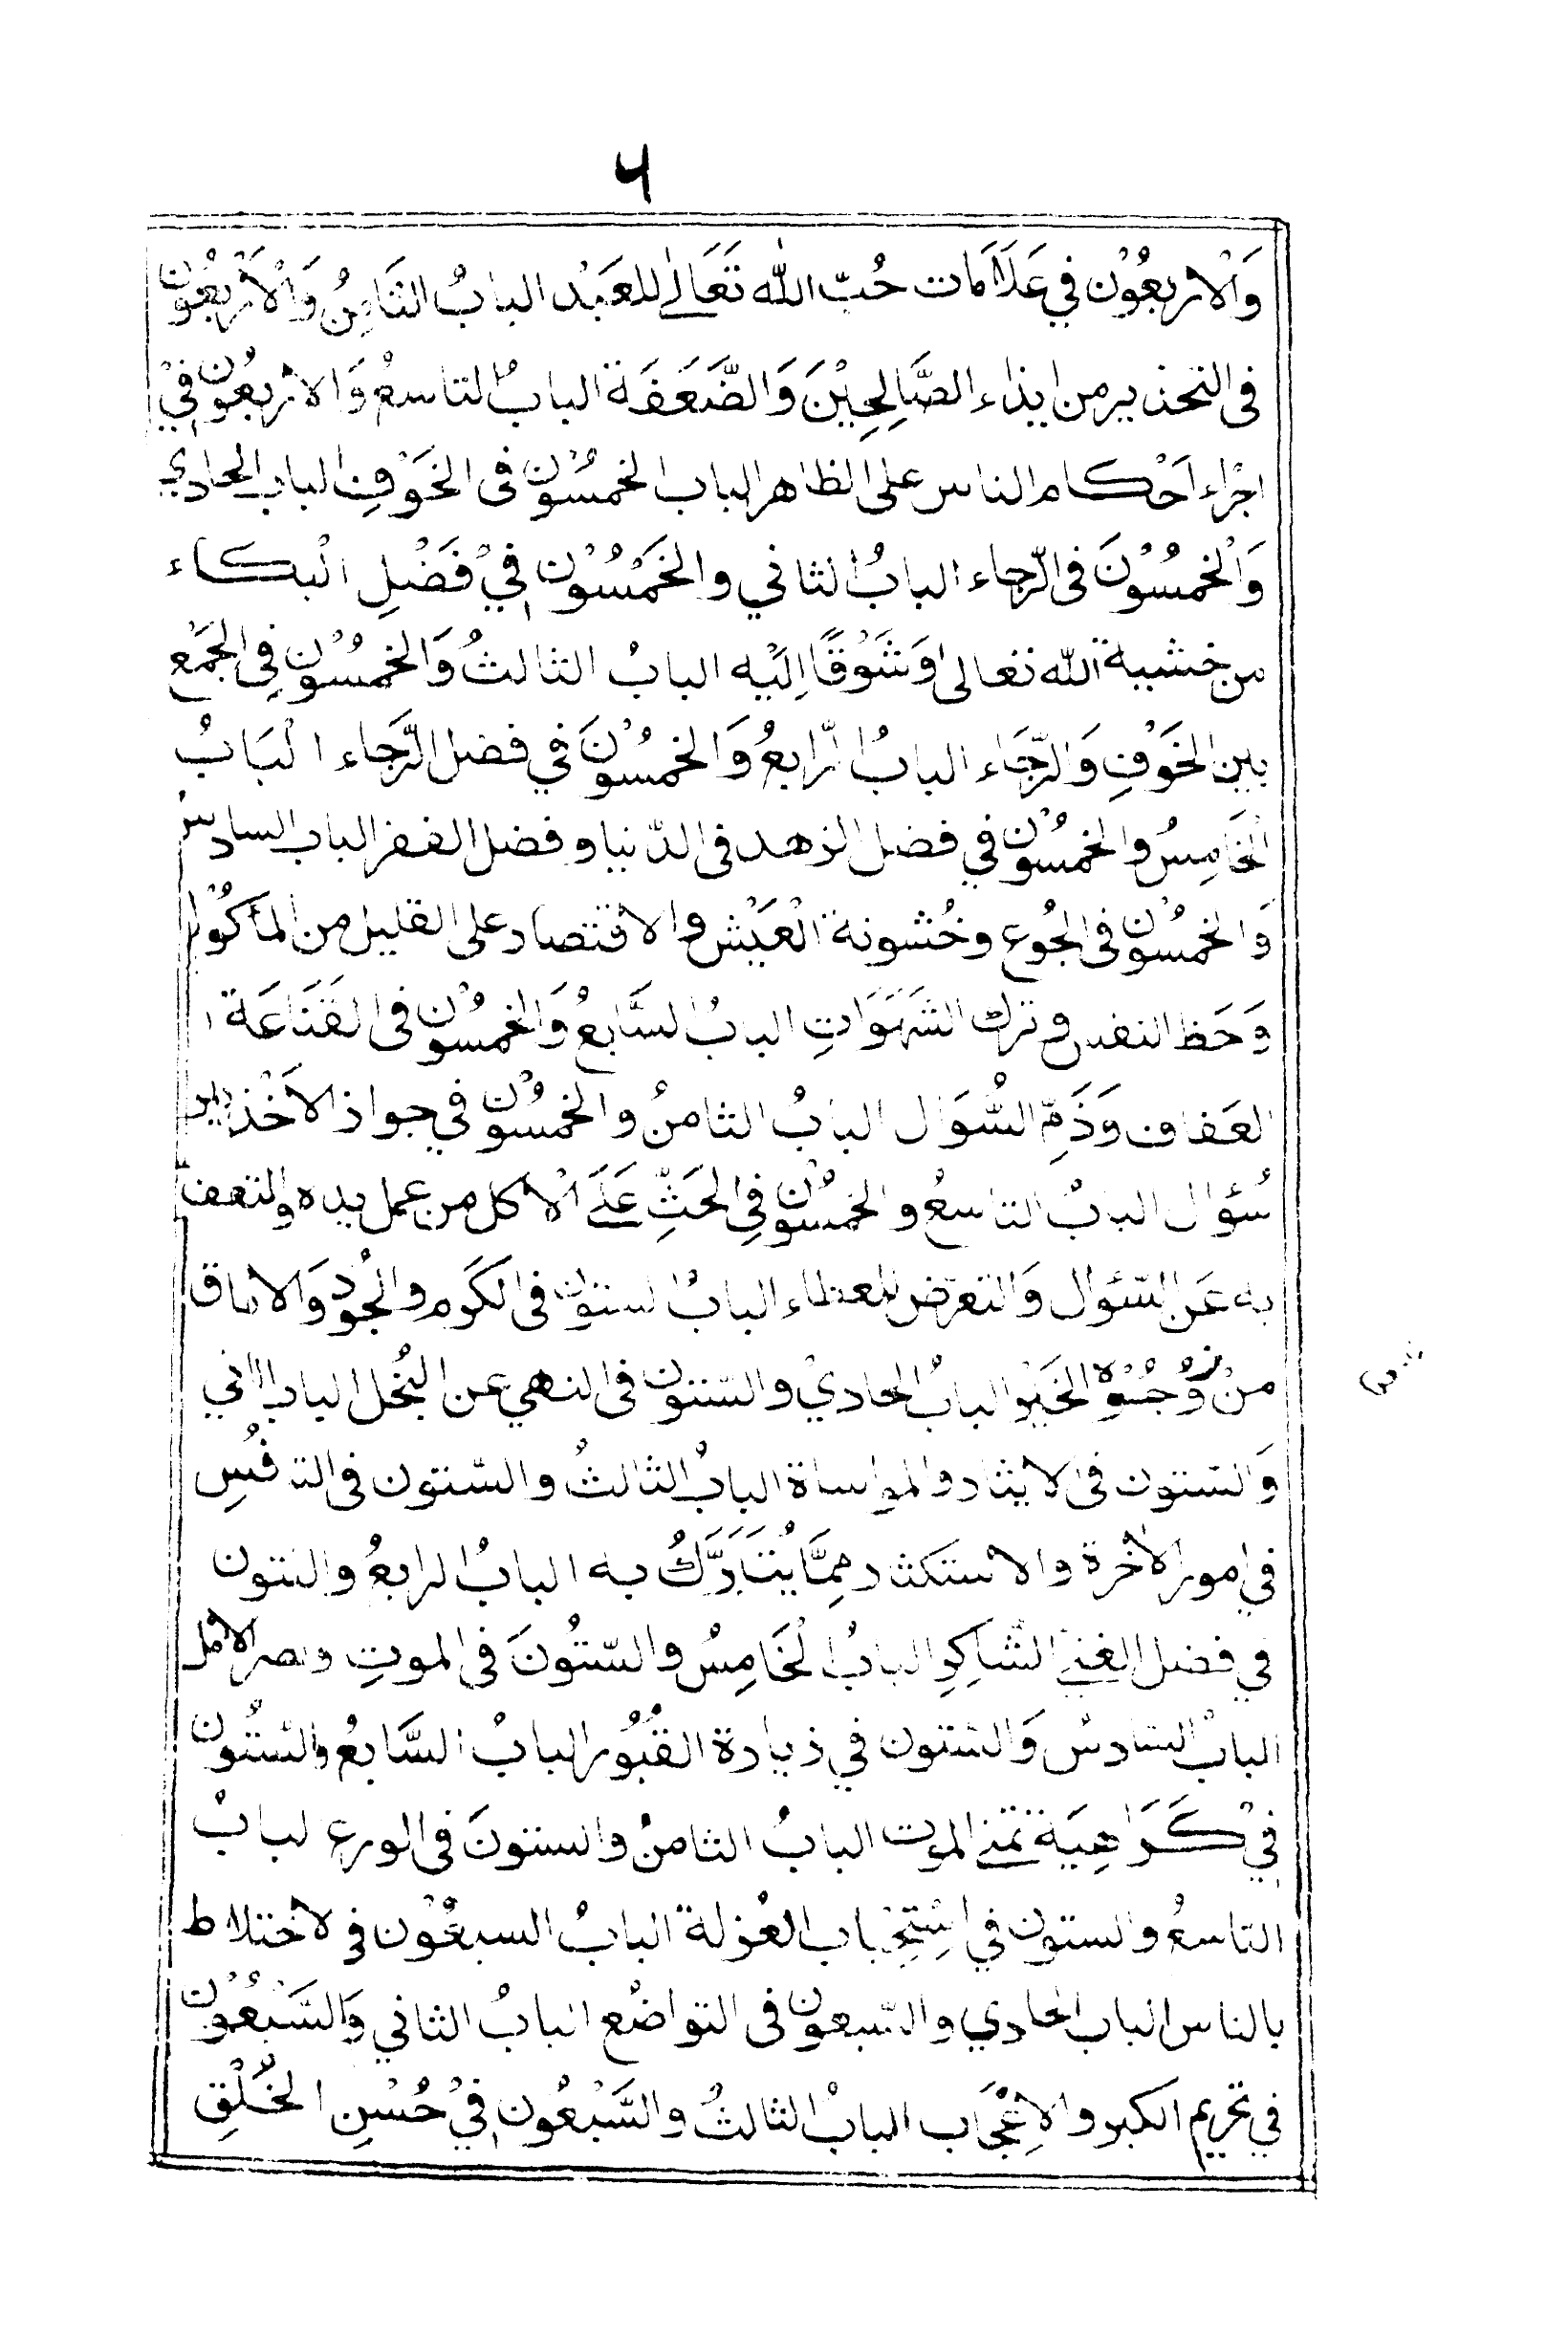 ٦
وَالْاربعُوْن في عَلَامَات حُبّ اللّٰه تَعَالٰے للعَبْد البابُ الثَامِنُ وَالْاَرْبعُوْن
فى التحذير من ايذاء الصَّالِحِيْنَ وَالضَّعَفَة البابُ التاسعُ وَالاربعُون فِيْ
اجْراء اَحْكام الناس على الظاهر الباب الخمسُوْن فى الخَوْفِ الباب الحادي
وَالْخمسُوْنَ فى الرّجاء البابُ الثاني والخَمْسُوْن فِيْ فَضْلِ الْبكاء
من خشية اللّٰه تعالىٰ وَشَوْقًا اِلَيْه البابُ الثالثُ وَالخمسُوْن فِى الجَمْع
بين الخَوْفِ وَالرّجَاء البابُ الرّابعُ وَالخمسُوْنَ في فضل الرَّجَاء الْبَابُ
الْخَامِسُ والخمسُوْن في فضل الزهد فى الدّنيا وفضل الفقر الباب السادسُ
وَالخمسُوْن فى الجُوع وخُشونة الْعَيْش والاقتصاد على القليل من المأكُوْل
وَحَظ النفس وترك الشَهَوَاتِ البابُ السَّابعُ وَالخمسُوْن فى القَنَاعَة ا
العَفاف وَذَمِّ السُّوَال البابُ الثامنُ والخمسُوْن في جواز الاَخْذ
سُؤال البابُ التاسعُ والخمسُوْن فِى الحَثِّ عَلَے الْاكل من عمل يده والتعفف
به عَن السّئوال وَالتعرّض للعطاء البابُ الستون فى الكَرم والجُود وَالانفاق
منْ وُجُوْه الخَيْر البابُ الحادىْ والستون فى النهي عن البُخل الباب الثاني
وَالستون فى الايثار والمواساة البابُ الثالثُ والستون فى التنافُسِ
في امور الاٰخرة والاستكثار مِمَّا يُتَبَرَّكُ به البابُ الرابعُ والستون
في فضل الغنے الشّاكِرِ البابُ الْخَامِسُ والستُونَ فى الموتِ وقصر الامل
البابُ السادسُ وَالستون في زيارة القُبُور البابُ السَّابعُ والستُون
فِيْ كَرَاهِيَة تمنے الموت البابُ الثامنُ والستونَ فى الورع لبابُ
التاسعُ والستون في اسْتِحْباب العُزلة البابُ السبعُوْن فى لاختلاط
بالناس الباب الحادي والسّبعون فى التواضُع البابُ الثاني وَالسَّبْعُوْن
في تحريم الكبر والاِعْجَاب البابُ الثالثُ والسَّبْعُون فِيْ حُسْنِ الخُلْقِ